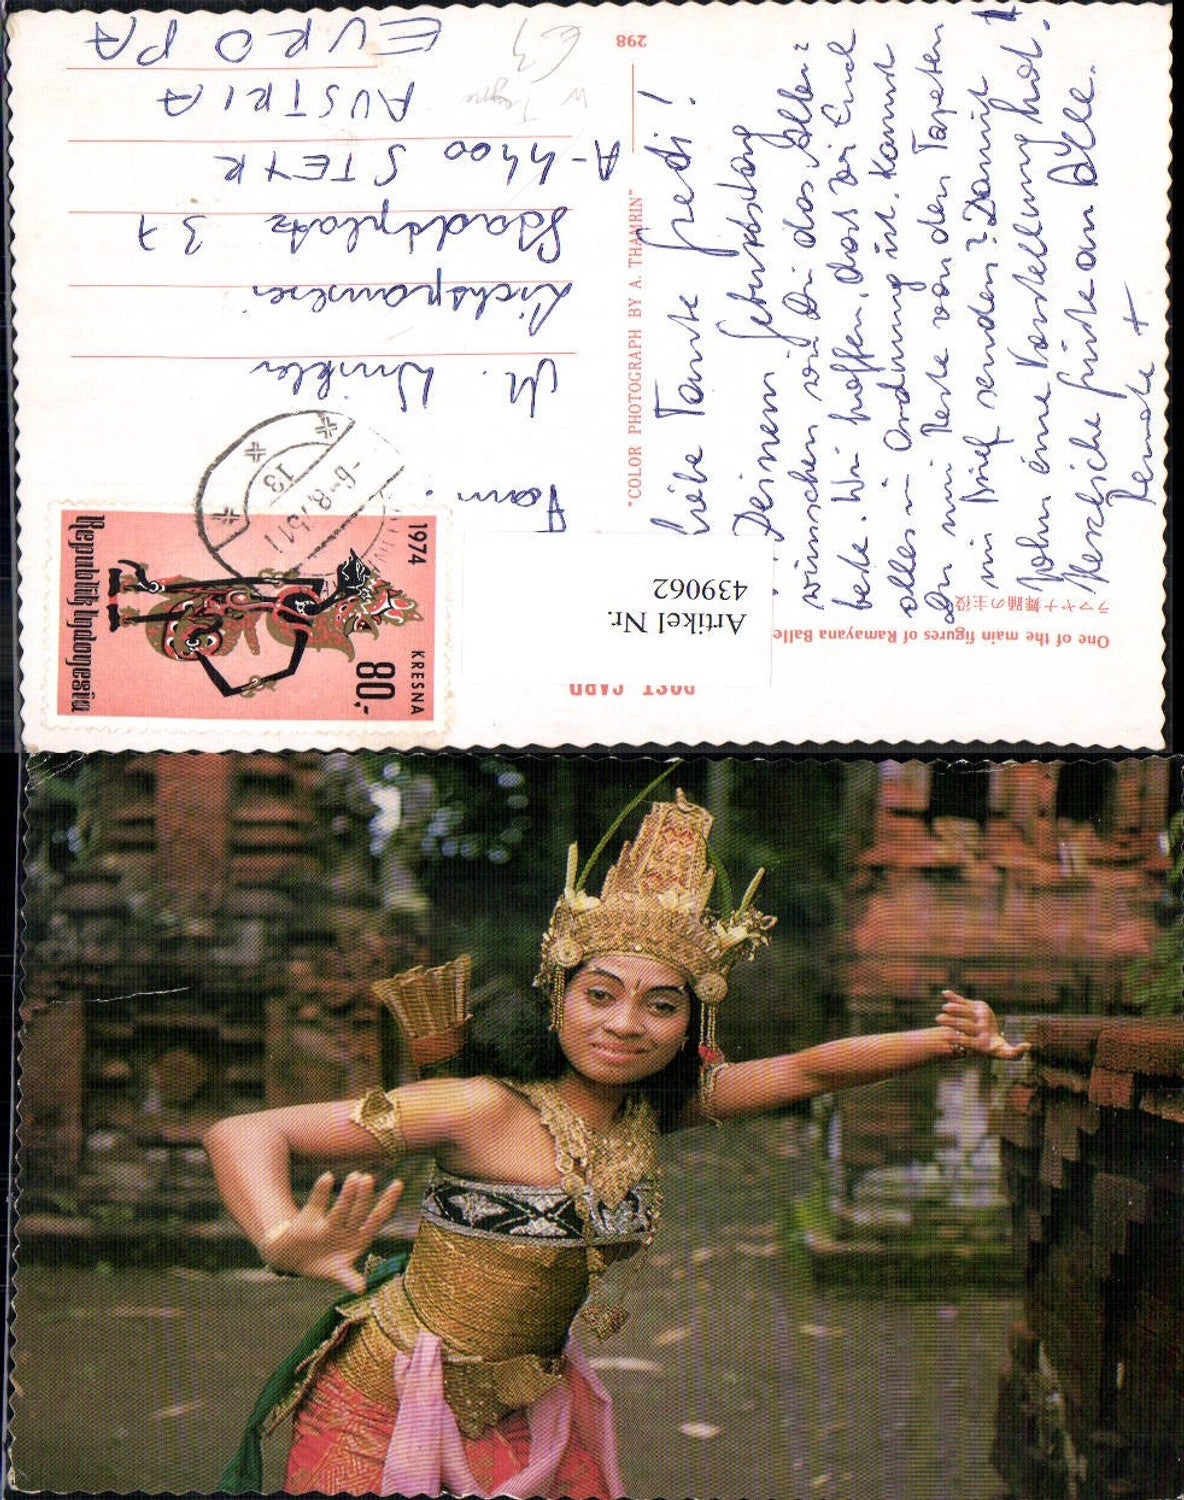 POST CARD
One of the main figures of Ramayana Balle
ラマヤナ舞踊の主役
Artikel Nr.
439062
Republik Indonesia
1974
80,-
KRESNA
-6.8.75.11
13
"COLOR PHOTOGRAPH BY A. THAMRIN"
298
Liebe Tante Fredi!
Deinem Geburtstag
wünschen wir Dir das Aller-
beste. Wir hoffen, dass bei Euch
alles in Ordnung ist. Kannst
Du mir Reste von den Tapeten
im Brief senden? Damit
John eine Vorstellung hat.
Herzliche Grüße an Alle.
Renate +
Fam.
M. Winkler
Stadtplatz 37
A-4400 STEYR
AUSTRIA
EUROPA